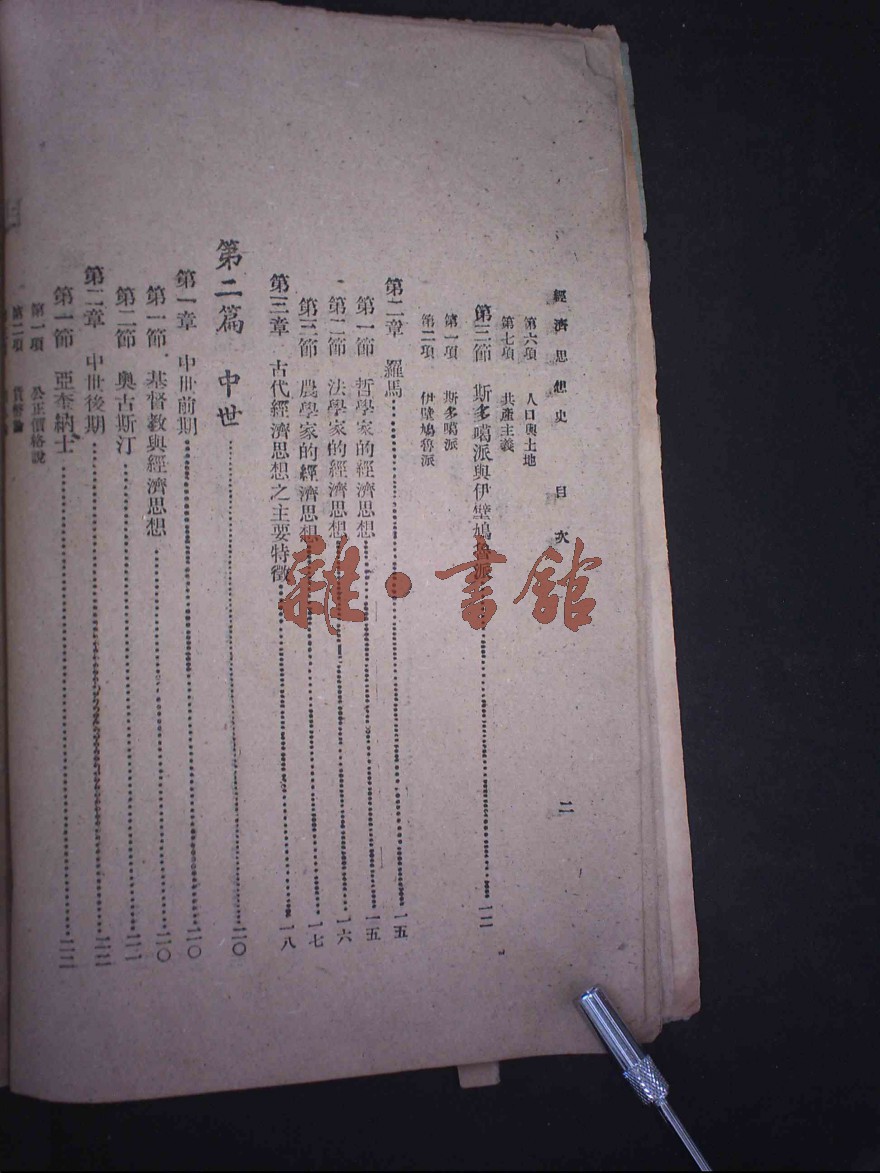 經濟思想史 目次 二
第六項 人口與土地
第七項 共產主義
第三節 斯多噶派與伊壁鳩魯派 一二
第一項 斯多噶派
第二項 伊壁鳩魯派
第二章 羅馬 一五
第一節 哲學家的經濟思想 一五
第二節 法學家的經濟思想 一六
第三節 農學家的經濟思想 一七
第三章 古代經濟思想之主要特徵 一八
第二篇 中世 二〇
第一章 中世前期 二〇
第一節 基督教與經濟思想 二〇
第二節 奧古斯汀 二一
第二章 中世後期 二二
第一節 亞奎納士 二二
第一項 公正價格說
第二項 貨幣論
雜·書館